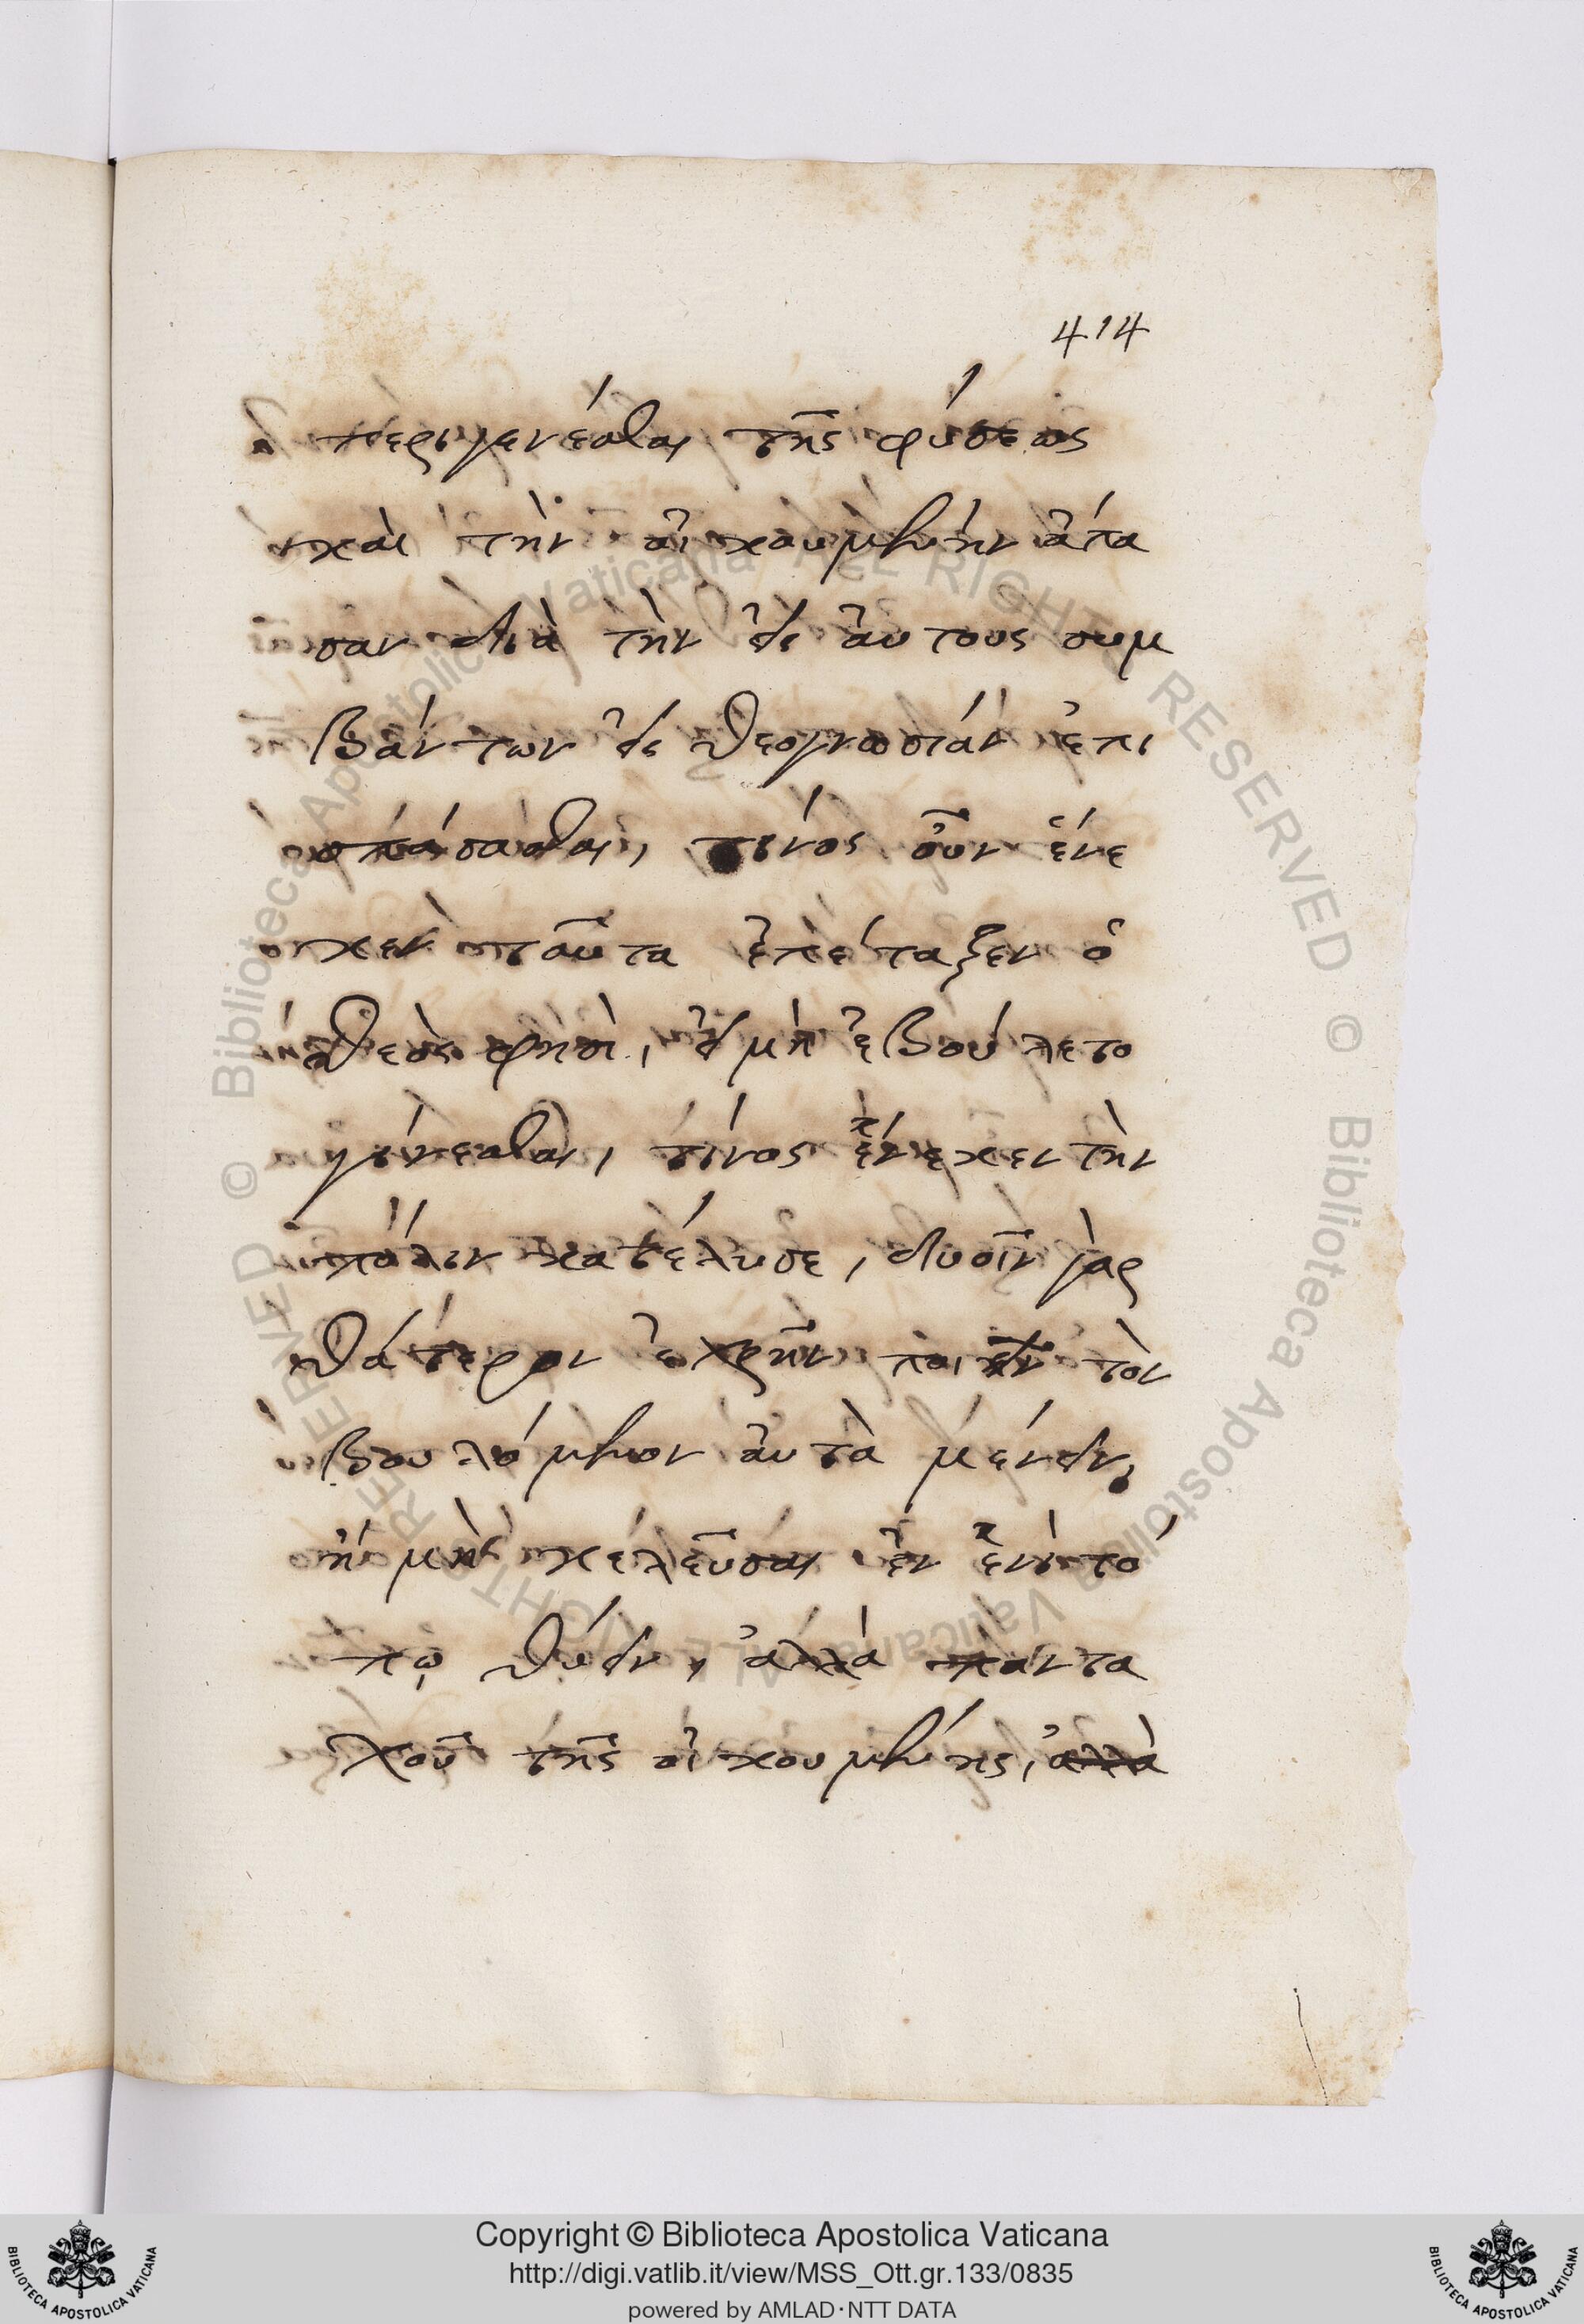 414
περιγενέσθαι τῆς φύσεως
καὶ τὴν οἰκουμένην ἅπα
σαν διὰ τὴν εἰς αὐτους συμ
βάντων εἰς θεογνωσίαν ἐπι
σπάσασθαι, τινός οὖν ἕνε
κεν ταῦτα ἐπέταξεν ὁ
θεὸς φησὶ, εἰ μὴ ἐβούλετο
γίνεσθαι, τίνος ἕνεκεν τὴν
πόλιν κατέλυσε, δυοῖν γὰρ
θάτερον ἐχρῆν ποιεῖν τὸν
βουλόμενον αὐτὰ μένειν,
ἢ μὴ κελεῦσαι ἐν ἑνὶ τό
πῳ θύειν, ἀλλὰ παντα
χοῦ τῆς οἰκουμένης, ἀλλὰ
Copyright © Biblioteca Apostolica Vaticana
http://digi.vatlib.it/view/MSS_Ott.gr.133/0835
powered by AMLAD·NTT DATA
BIBLIOTECA APOSTOLICA VATICANA
BIBLIOTECA APOSTOLICA VATICANA
© Biblioteca Apostolica Vaticana ALL RIGHTS RESERVED © Biblioteca Apostolica Vaticana ALL RIGHTS RESERVED